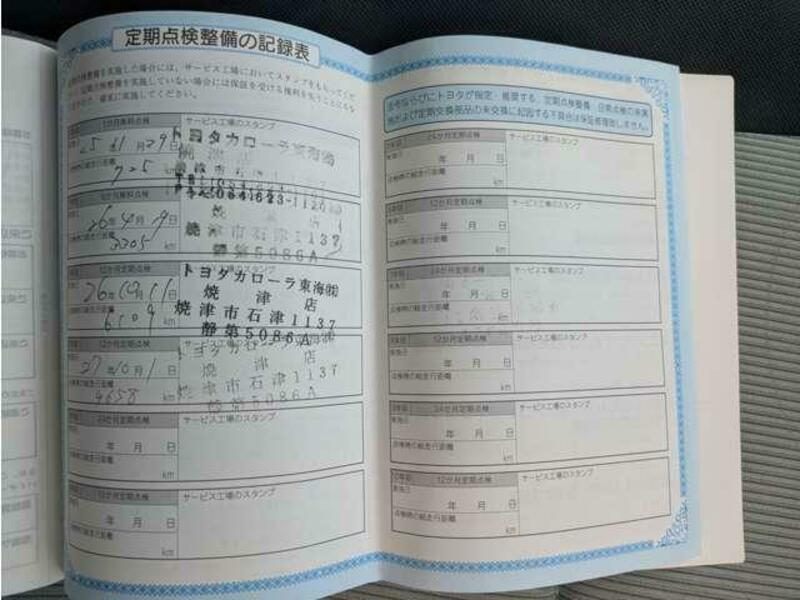 定期点検整備の記録表
定期点検整備を実施した場合には、サービス工場においてスタンプをもらってくだ
定期点検整備を実施していない場合には保証を受ける権利を失うことにもな
確実に実施してください。
1か月無料点検
サービス工場のスタンプ
トヨタカローラ東海㈱
年 月 29日
焼津店
点検時の総走行距離
725 km
焼津市石津
6か月無料点検
26年4月9日
焼津店
点検時の総走行距離
3305 km
焼津市石津1137
静第5086A
12か月定期点検
サービス工場のスタンプ
トヨタカローラ東海㈱
26年10月11日
焼津店
点検時の総走行距離
焼津市石津1137
6109 km
静第5086A
12か月定期点検
サービス工場のスタンプ
トヨタカローラ東海㈱
27年10月1日
焼津店
点検時の総走行距離
焼津市石津1137
9658 km
静第5086A
24か月定期点検
サービス工場のスタンプ
実施日
年 月 日
点検時の総走行距離
km
12か月定期点検
サービス工場のスタンプ
実施日
年 月 日
点検時の総走行距離
km
法令ならびにトヨタが指定・推奨する、定期点検整備・日常点検の未実
施および定期交換部品の未交換に起因する不具合は保証修理致しません。
24か月定期点検
サービス工場のスタンプ
実施日
年 月 日
点検時の総走行距離
km
12か月定期点検
サービス工場のスタンプ
実施日
年 月 日
点検時の総走行距離
km
24か月定期点検
サービス工場のスタンプ
実施日
年 月 日
点検時の総走行距離
km
12か月定期点検
サービス工場のスタンプ
実施日
年 月 日
点検時の総走行距離
km
24か月定期点検
サービス工場のスタンプ
実施日
年 月 日
点検時の総走行距離
km
12か月定期点検
サービス工場のスタンプ
実施日
年 月 日
点検時の総走行距離
km